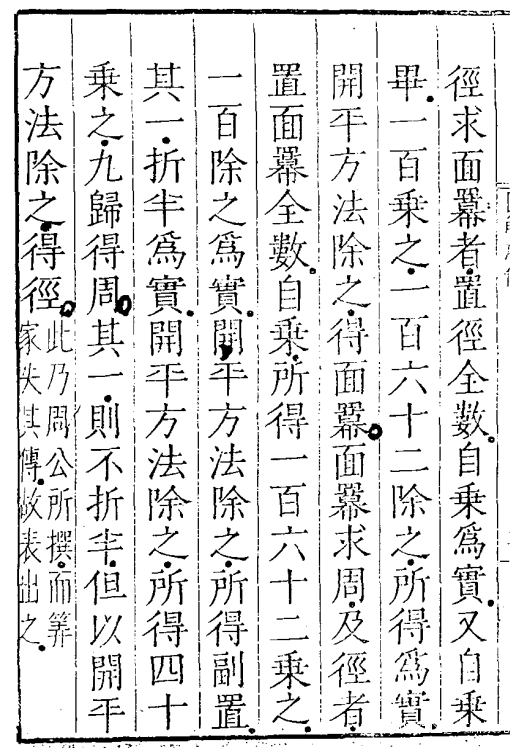 徑求面羃者置徑全數自乘爲實又自乘
畢一百乘之一百六十二除之所得爲實
開平方法除之得面羃面羃求周及徑者
置面羃全數自乘所得一百六十二乘之
一百除之爲實開平方法除之所得副置
其一折半爲實開平方法除之所得四十
乘之九歸得周其一則不折半但以開平
方法除之得徑此乃周公所撰而筭
家失其傳故表出之